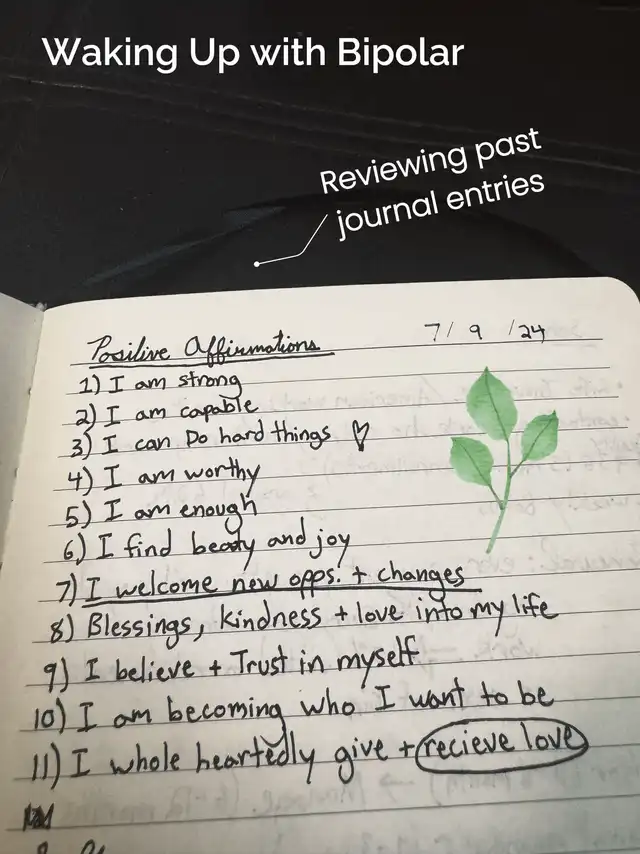 Waking Up with Bipolar
Reviewing past
journal entries
Positive Affirmations 7/ 9 /24
1) I am strong
2) I am capable
3) I can Do hard things ♡
4) I am worthy
5) I am enough
6) I find beauty and joy
7) I welcome new opps. + changes
8) Blessings, kindness + love into my life
9) I believe + Trust in myself
10) I am becoming who I want to be
11) I whole heartedly give + recieve love